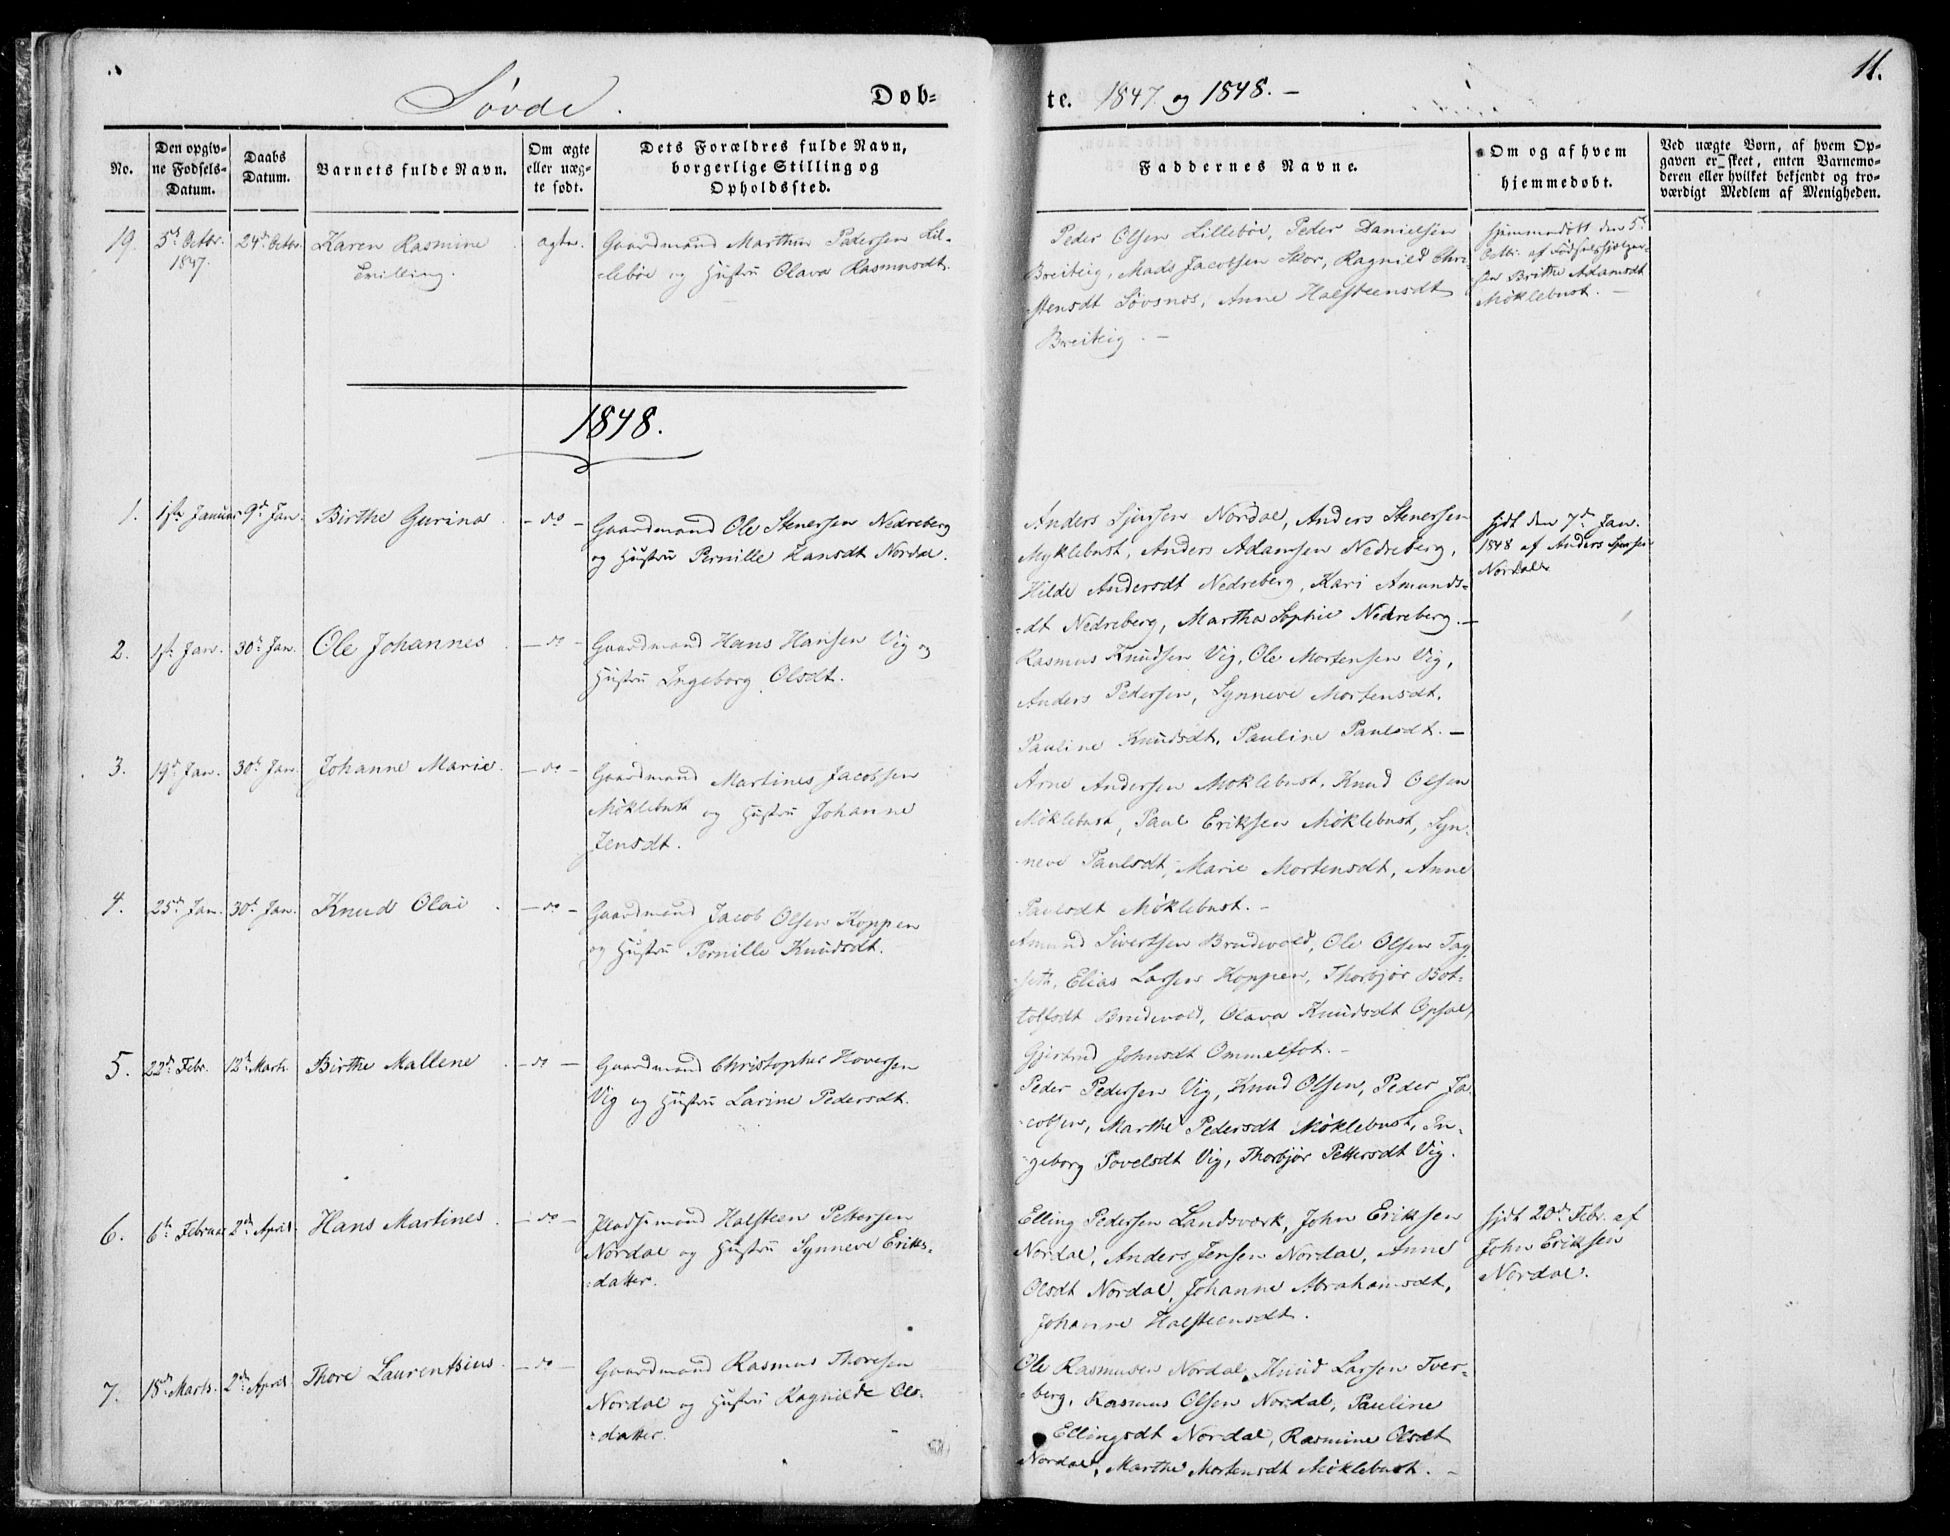 Søvde.
Døb-
te. 1847 og 1848. –
11.
No.
Den opgiv-
ne Fødsels-
Datum.
Daabs
Datum.
Barnets fulde Navn.
Om ægte
eller uæg-
te født.
Dets Forældres fulde Navn,
borgerlige Stilling og
Opholdssted.
Faddernes Navne.
Om og af hvem
hjemmedøbt.
Ved uægte Børn, af hvem Op-
gaven er skeet, enten Barnemo-
deren eller hvilket bekjendt og tro-
værdigt Medlem af Menigheden.
19.
5t Octbr.
1847.
24de Octbr
Karen Rasmine
ægte.
Gaardmand Marthin Pedersen Lil-
lebøe og Hustru Olava Rasmusdt.
Peder Olsen Lillebøe, Peder Danielsen
Breiteig, Mads Jacobsen Skor, Ragnild Chri-
stensdt Søvsnes, Anne Halsteensdt
Breiteig. –
Hjemmedøbt den 5t
Octbr. af Fødselshjelper-
sken Birthe Adamsdt
Møklebust. –
1848.
1.
1ste Januar
9de Jan.
Birthe Gurine
– do –
Gaardmand Ole Stenersen Nedreberg
og Hustru Pernille Hansdt Nordal.
Anders Sjursen Nordal, Anders Stenersen
Myklebust, Anders Adamsen Nedreberg,
Hilde Andersdt Nedreberg, Kari Amunds-
-dt Nedreberg, Martha Sophie Nedreberg. –
hjdt den 7de Jan.
1848 af Anders Sjursen
Nordal.
2.
1ste Jan.
30te Jan.
Ole Johannes
– do –
Gaardmand Hans Hansen Vig og
Hustru Ingeborg Olsdt.
Rasmus Knudsen Vig, Ole Mortensen Vig,
Anders Pedersen, Synneve Mortensdt.
Pauline Knudsdt, Pauline Paulsdt. –
3.
19de Jan.
30te Jan.
Johanne Marie.
– do –
Gaardmand Martines Jacobsen
Møklebust og Hustru Johanne
Jensdt.
Arne Andersen Møklebust, Knud Olsen
Møklebust, Paul Eriksen Møklebust, Syn-
neve Paulsdt, Marie Mortensdt, Anne
Paulsdt Møklebust. –
4.
25de Jan.
30te Jan.
Knud Olai
– do –
Gaardmand Jacob Olsen Koppen
og Hustru Pernille Knudsdt.
Amund Sivertsen Brudevold, Ole Olsen Tag-
seth, Elias Larsen Koppen, Thorbjør Bot-
tolfsdt Brudevold, Olava Knudsdt Opsal,
Gjertrud Johnsdt Ommelfot. –
5.
22de Febr.
12te Marts
Birthe Mallene
– do –
Gaardmand Christopher Hoversen
Vig og Hustru Larine Pedersdt.
Peder Pedersen Vig, Knud Olsen, Peder Ja-
cobsen, Marthe Pedersdt Møklebust, In-
geborg Povelsdt Vig, Thorbjør Pettersdt Vig.
6.
6te Februar
2de April
Hans Martines
– do –
Pladsemand Halsteen Pettersen
Nordal og Hustru Synneve Eriks-
-datter.
Elling Pedersen Landsværk, John Eriksen
Nordal, Anders Jensen Nordal, Anne
Olsdt Nordal, Johanne Abrahamsdt,
Johanne Halsteensdt.
hjdt 20de Febr. af
John Eriksen
Nordal.
7.
18de Marts.
2de April
Thore Laurentsius.
– do –
Gaardmand Rasmus Thoresen
Nordal og Hustru Ragnilde Ols-
-datter.
Ole Rasmusen Nordal, Knud Larsen Tver-
-berg, Rasmus Olsen Nordal, Pauline
Ellingsdt Nordal, Rasmine Olsdt
Nordal, Marthe Mortensdt Møklebust. –